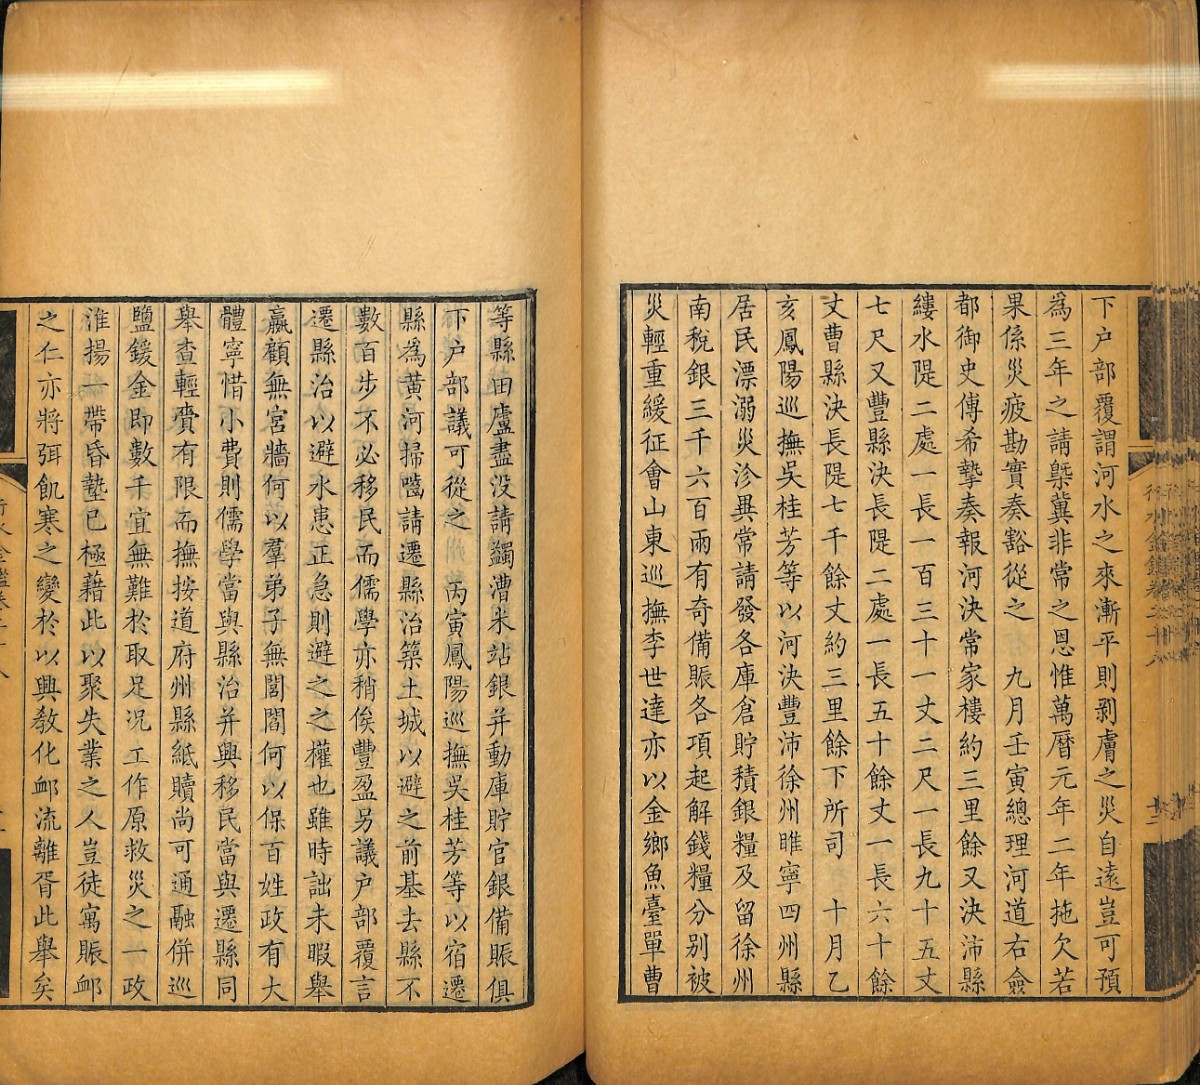 下户部覆謂河水之來漸平則剥膚之災自逺豈可預
為三年之請槩冀非常之恩惟萬曆元年二年拖欠若
果係災疲勘實奏豁從之　九月壬寅總理河道右僉
都御史傅希摯奏報河決常家樓約三里餘又決沛縣
縷水隄二處一長一百三十一丈二尺一長九十五丈
七尺又豐縣決長隄二處一長五十餘丈一長六十餘
丈曹縣決長隄七千餘丈約三里餘下所司　十月乙
亥鳳陽巡撫吳桂芳等以河決豐沛徐州睢寧四州縣
居民漂溺災沴異常請發各庫倉貯積銀糧及留徐州
南稅銀三千六百兩有奇備賑各項起解錢糧分别被
災輕重緩征會山東巡撫李世達亦以金鄉魚臺單曹
等縣田廬盡没請蠲漕米站銀并動庫貯官銀備賑俱
下户部議可從之　丙寅鳳陽巡撫吳桂芳等以宿遷
縣為黃河掃囓請遷縣治築土城以避之前基去縣不
數百步不必移民而儒學亦稍俟豐盈另議户部覆言
遷縣治以避水患正急則避之之權也雖時詘未暇舉
贏顧無宮牆何以羣弟子無閭閻何以保百姓政有大
體寧惜小費則儒學當與縣治并興移民當與遷縣同
舉查輕賫有限而撫按道府州縣紙贖尚可通融併巡
鹽鍰金即數千宜無難於取足况工作原救災之一政
淮揚一帶昏墊已極藉此以聚失業之人豈徒寓賑卹
之仁亦將弭飢寒之變於以興敎化卹流離胥此舉矣
行水金鑑卷二十八